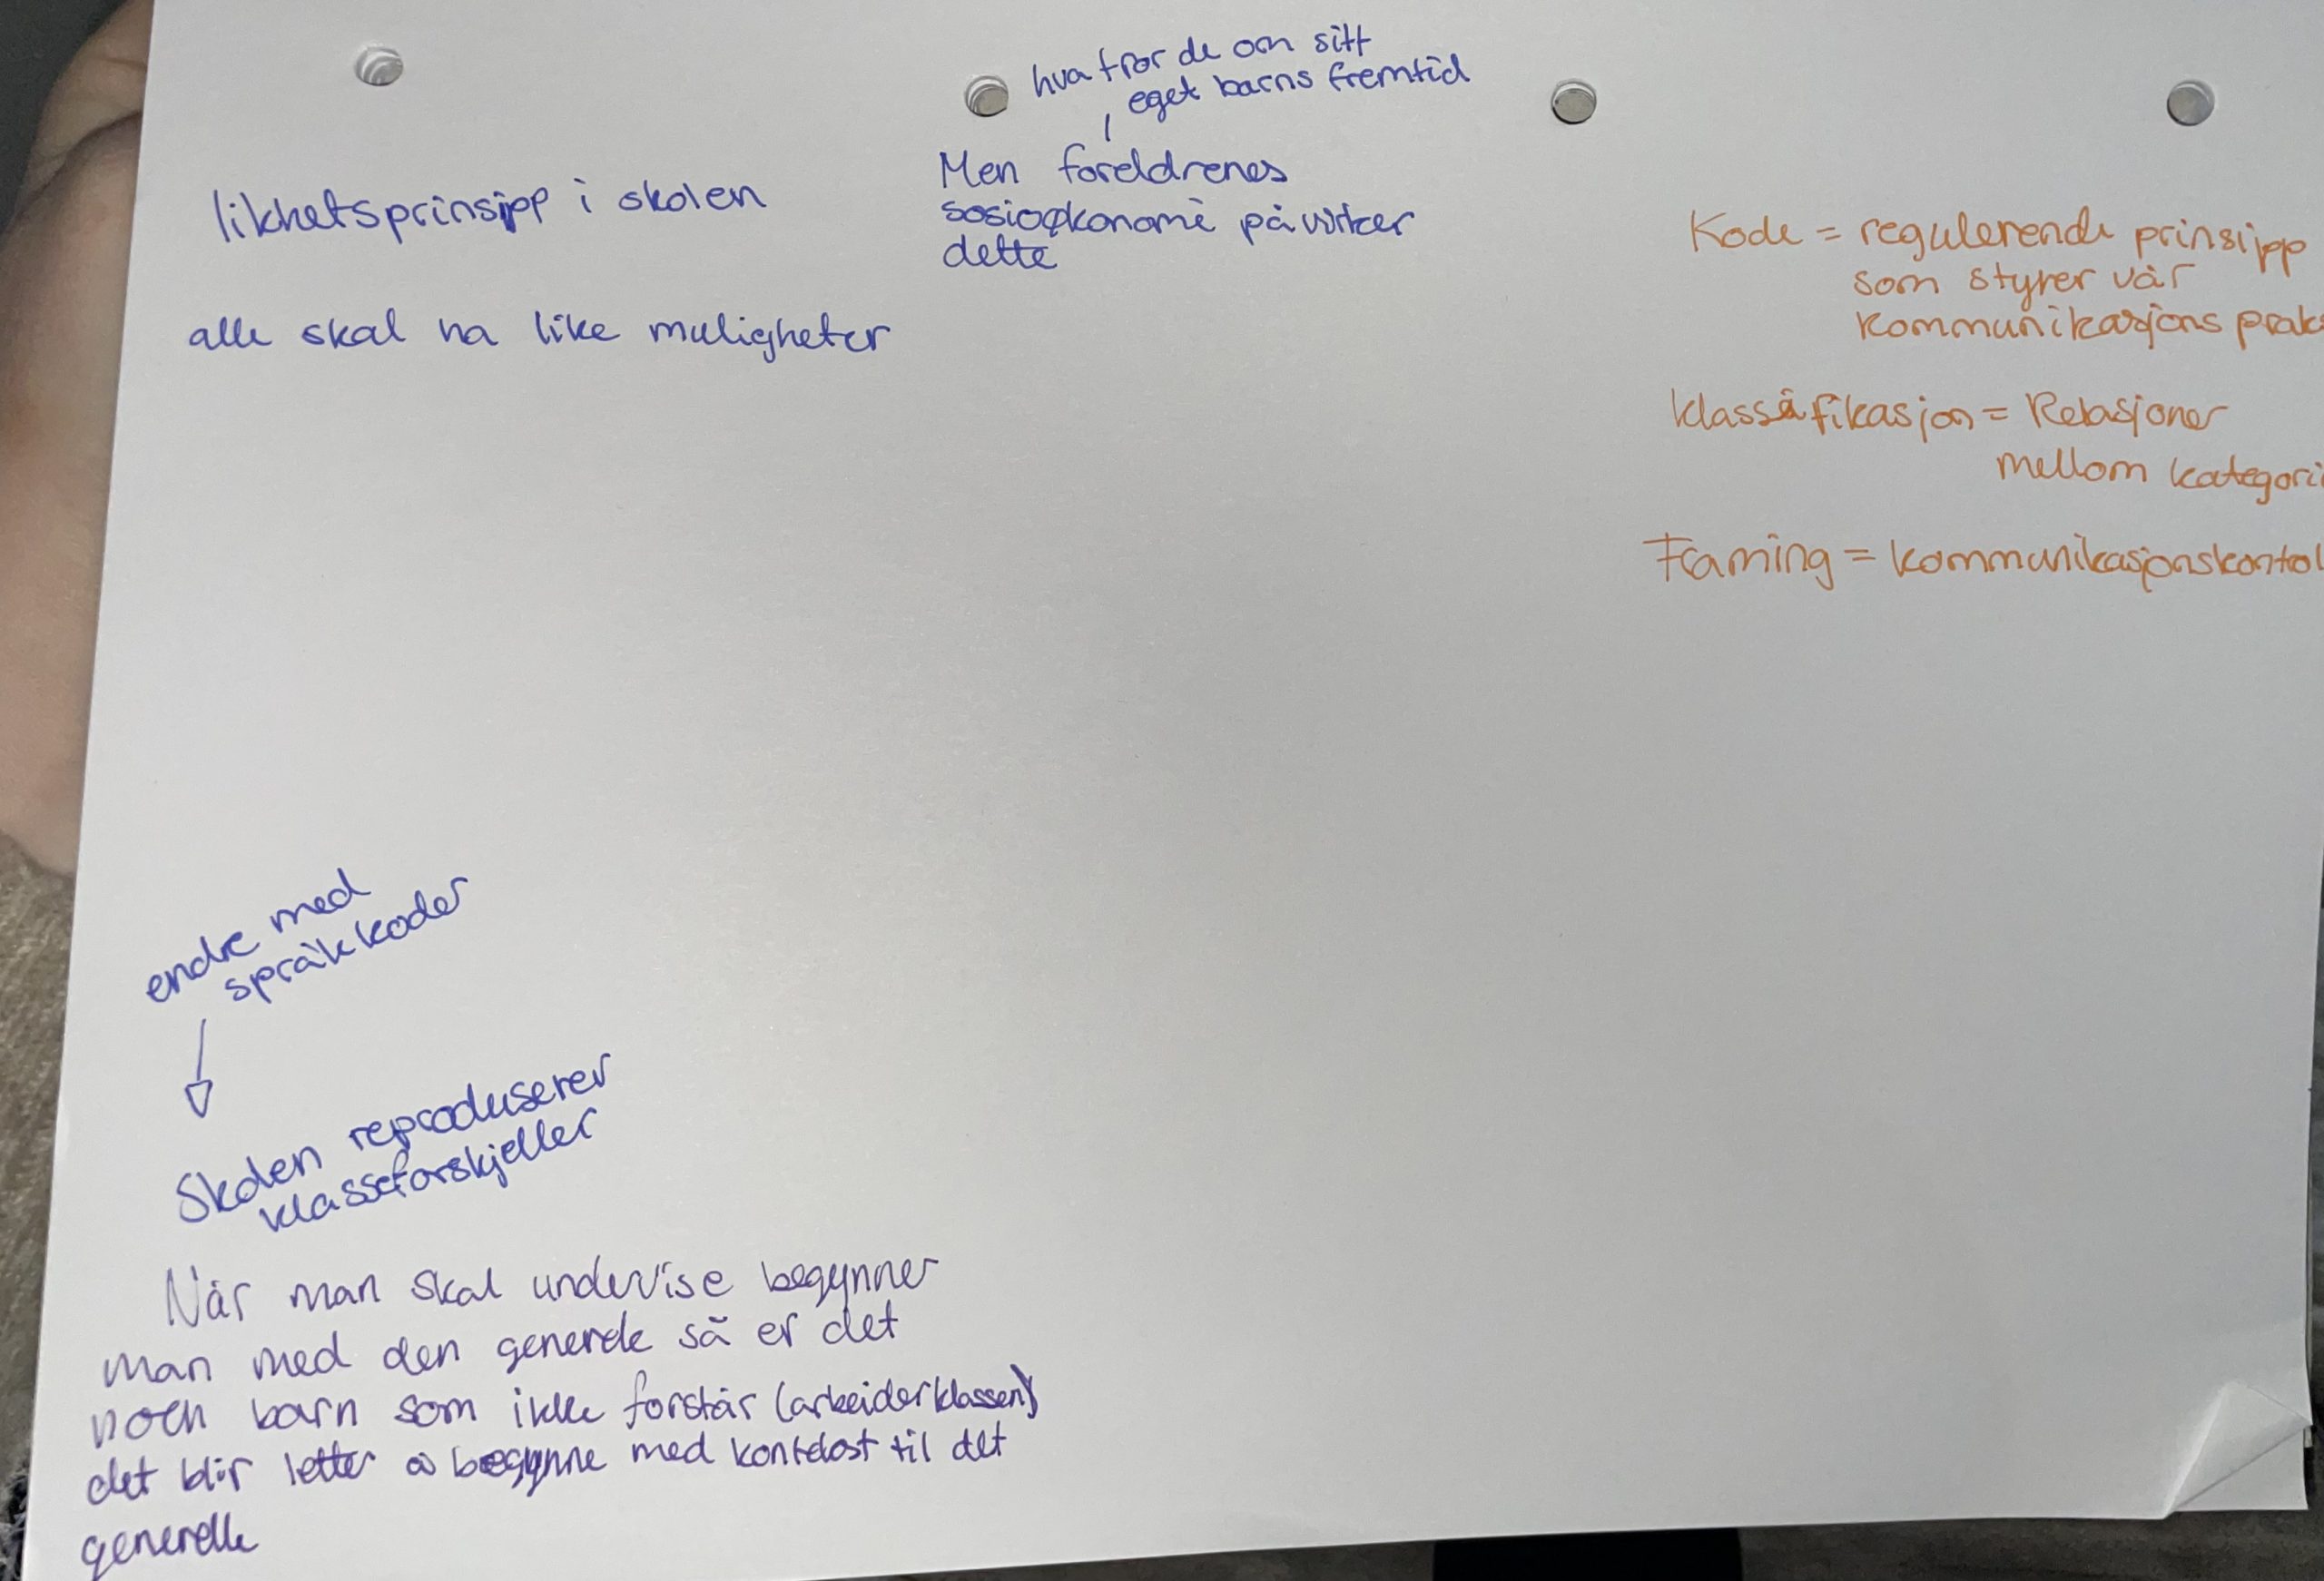 likhetsprinsipp i skolen
alle skal ha like muligheter
hva tror de om sitt
eget barns fremtid
Men foreldrenes
sosioøkonomi påvirker
dette
Kode = regulerende prinsipp
som styrer vår
kommunikasjons praks
klassifikasjon = Relasjoner
mellom kategori
Framing = kommunikasjonskontol
endre med
språkkoder
Skolen reproduserer
klasseforskjeller
Når man skal undervise begynner
man med den generele så er det
noen barn som ikke forstår (arbeiderklassen)
det blir letter å begynne med kontekst til det
generelle